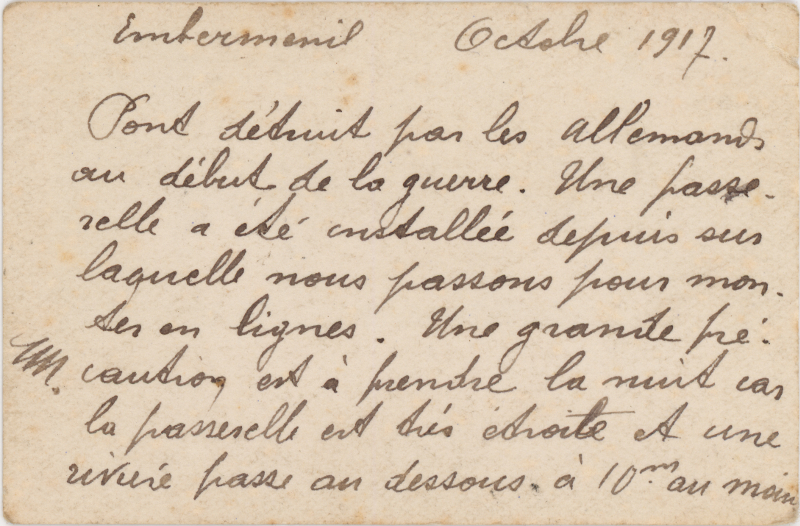 Embermenil Octobre 1917.
Pont détruit par les allemands
au début de la guerre. Une passe-
relle a été installée depuis sur
laquelle nous passons pour mon-
ter en lignes. Une grande pré-
caution est à prendre la nuit car
la passerelle est très étroite et une
rivière passe au dessous à 10m au moins